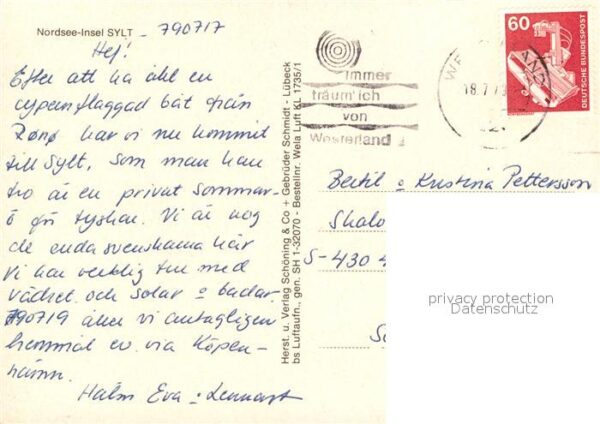 Nordsee-Insel SYLT - 790717
Hej!
Efter att ha åkt en
cypernflaggad båt från
Rømø har vi nu kommit
till Sylt, som man kan
tro är en privat sommar-
ö för tyskar. Vi är nog
de enda svenskarna här
Vi har verklig tur med
vädret och solar o badar.
790719 åker vi antagligen
hemmåt ev via Köpen-
hamn.
Eva o Lennart
Herst. u. Verlag Schöning & Co + Gebrüder Schmidt - Lübeck
bs Luftaufn., gen. SH 1-32070 - Bestellnr. Wela Luft KL 1735/1
immer
träum' ich
von
Westerland
18.7.79
60
DEUTSCHE BUNDESPOST
Bertil o Kristina Pettersson
S-430 4
privacy protection
Datenschutz